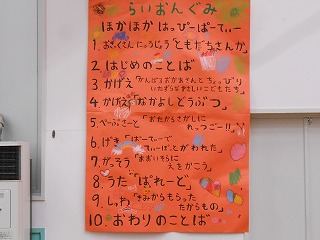 らいおんぐみ
ほかほか はっぴーぱーてぃー
1. おきゃくさん にゅうじょう ともだちさんか
2. はじめのことば
3. かげえ「がんばるおかあさんと ちょっぴり
いたずらな やさしいこどもたち」
4. かげえ「なかよしどうぶつ」
5. ぺーぷさーと「おたからさがしに
れっつごー!!」
6. げき「ぱーてぃーで
てぃーぽっとがわれた」
7. がっそう「あおいそらに
えをかこう」
8. うた「ぱれーど」
9. しゅわ「きみからもらった
たからもの」
10. おわりのことば